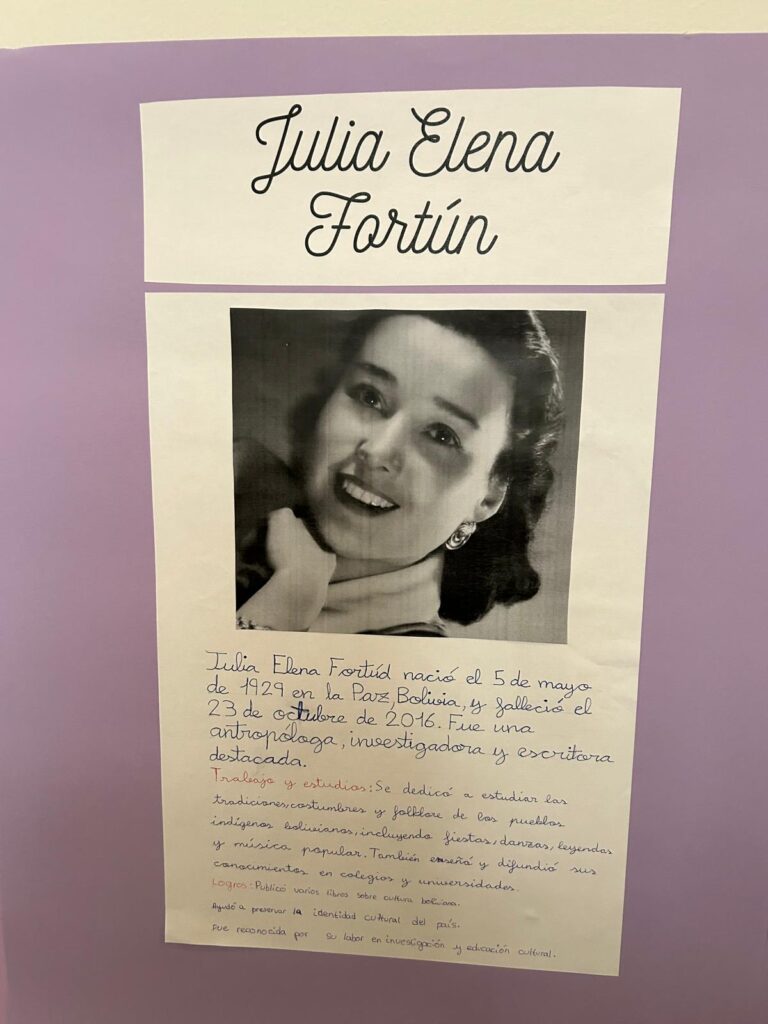 Julia Elena
Fortún
Julia Elena Fortúd nació el 5 de mayo
de 1929 en la Paz, Bolivia, y falleció el
23 de octubre de 2016. Fue una
antropóloga, investigadora y escritora
destacada.
Trabajo y estudios: Se dedicó a estudiar las
tradiciones, costumbres y folklore de los pueblos
indígenos bolivianos, incluyendo fiestas, danzas, leyendas
y música popular. También enseñá y difundió sus
conocimientos en colegios y universidades.
Logros: Publicó varios libros sobre cultura boliviana.
Ayudó a preservar la identidad cultural del país.
Fue reconocida por su labor en investigación y educación cultural.